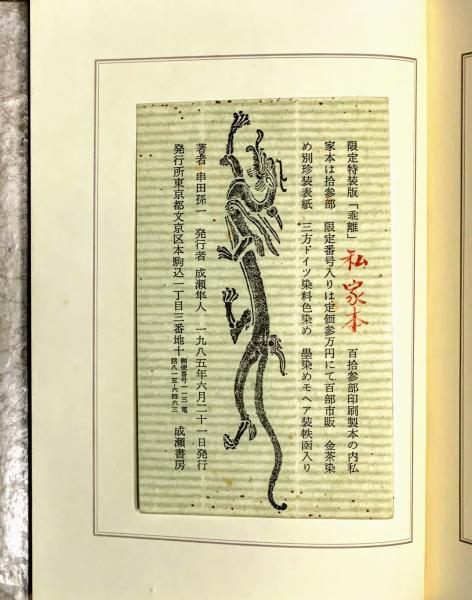 限定特装版「乖離」 私家本 百拾参部印刷製本の内私
家本は拾参部 限定番号入りは定価参万円にて百部市販 金茶染
め別珍装表紙 三方ドイツ染料色染め 墨染めモヘア装帙函入り
著者 串田孫一 発行者 成瀬隼人 一九八五年六月二十一日発行
発行所東京都文京区本駒込一丁目三番地十 郵便番号一一三 電話八一五・六四六三 成瀬書房